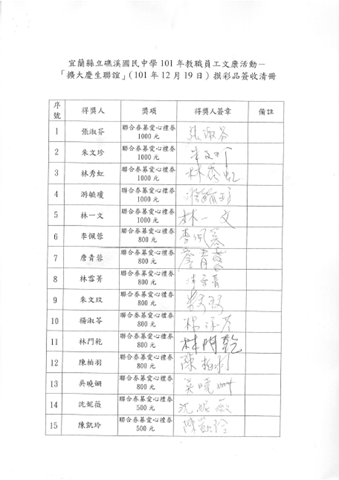 宜蘭縣立礁溪國民中學101年教職員工文康活動－
「擴大慶生聯誼」(101年12月19日)摸彩品簽收清冊
序號 得獎人 獎項 得獎人簽章 備註
1 張淑芬 聯合泰募愛心禮券 1000元 張淑芬
2 朱文珍 聯合泰募愛心禮券 1000元
3 林秀虹 聯合泰募愛心禮券 1000元 林秀虹
4 游毓瓊 聯合泰募愛心禮券 1000元
5 林一文 聯合泰募愛心禮券 1000元 林一文
6 李佩蓉 聯合泰募愛心禮券 800元 李佩蓉
7 詹青蓉 聯合泰募愛心禮券 800元
8 林雪菁 聯合泰募愛心禮券 800元
9 朱文玟 聯合泰募愛心禮券 800元
10 楊淑芬 聯合泰募愛心禮券 800元
11 林門乾 聯合泰募愛心禮券 800元 林門乾
12 陳柏羽 聯合泰募愛心禮券 800元 陳柏羽
13 吳曉嫻 聯合泰募愛心禮券 800元
14 沈妮薇 聯合泰募愛心禮券 500元 沈妮薇
15 陳凱玲 聯合泰募愛心禮券 500元 陳凱玲